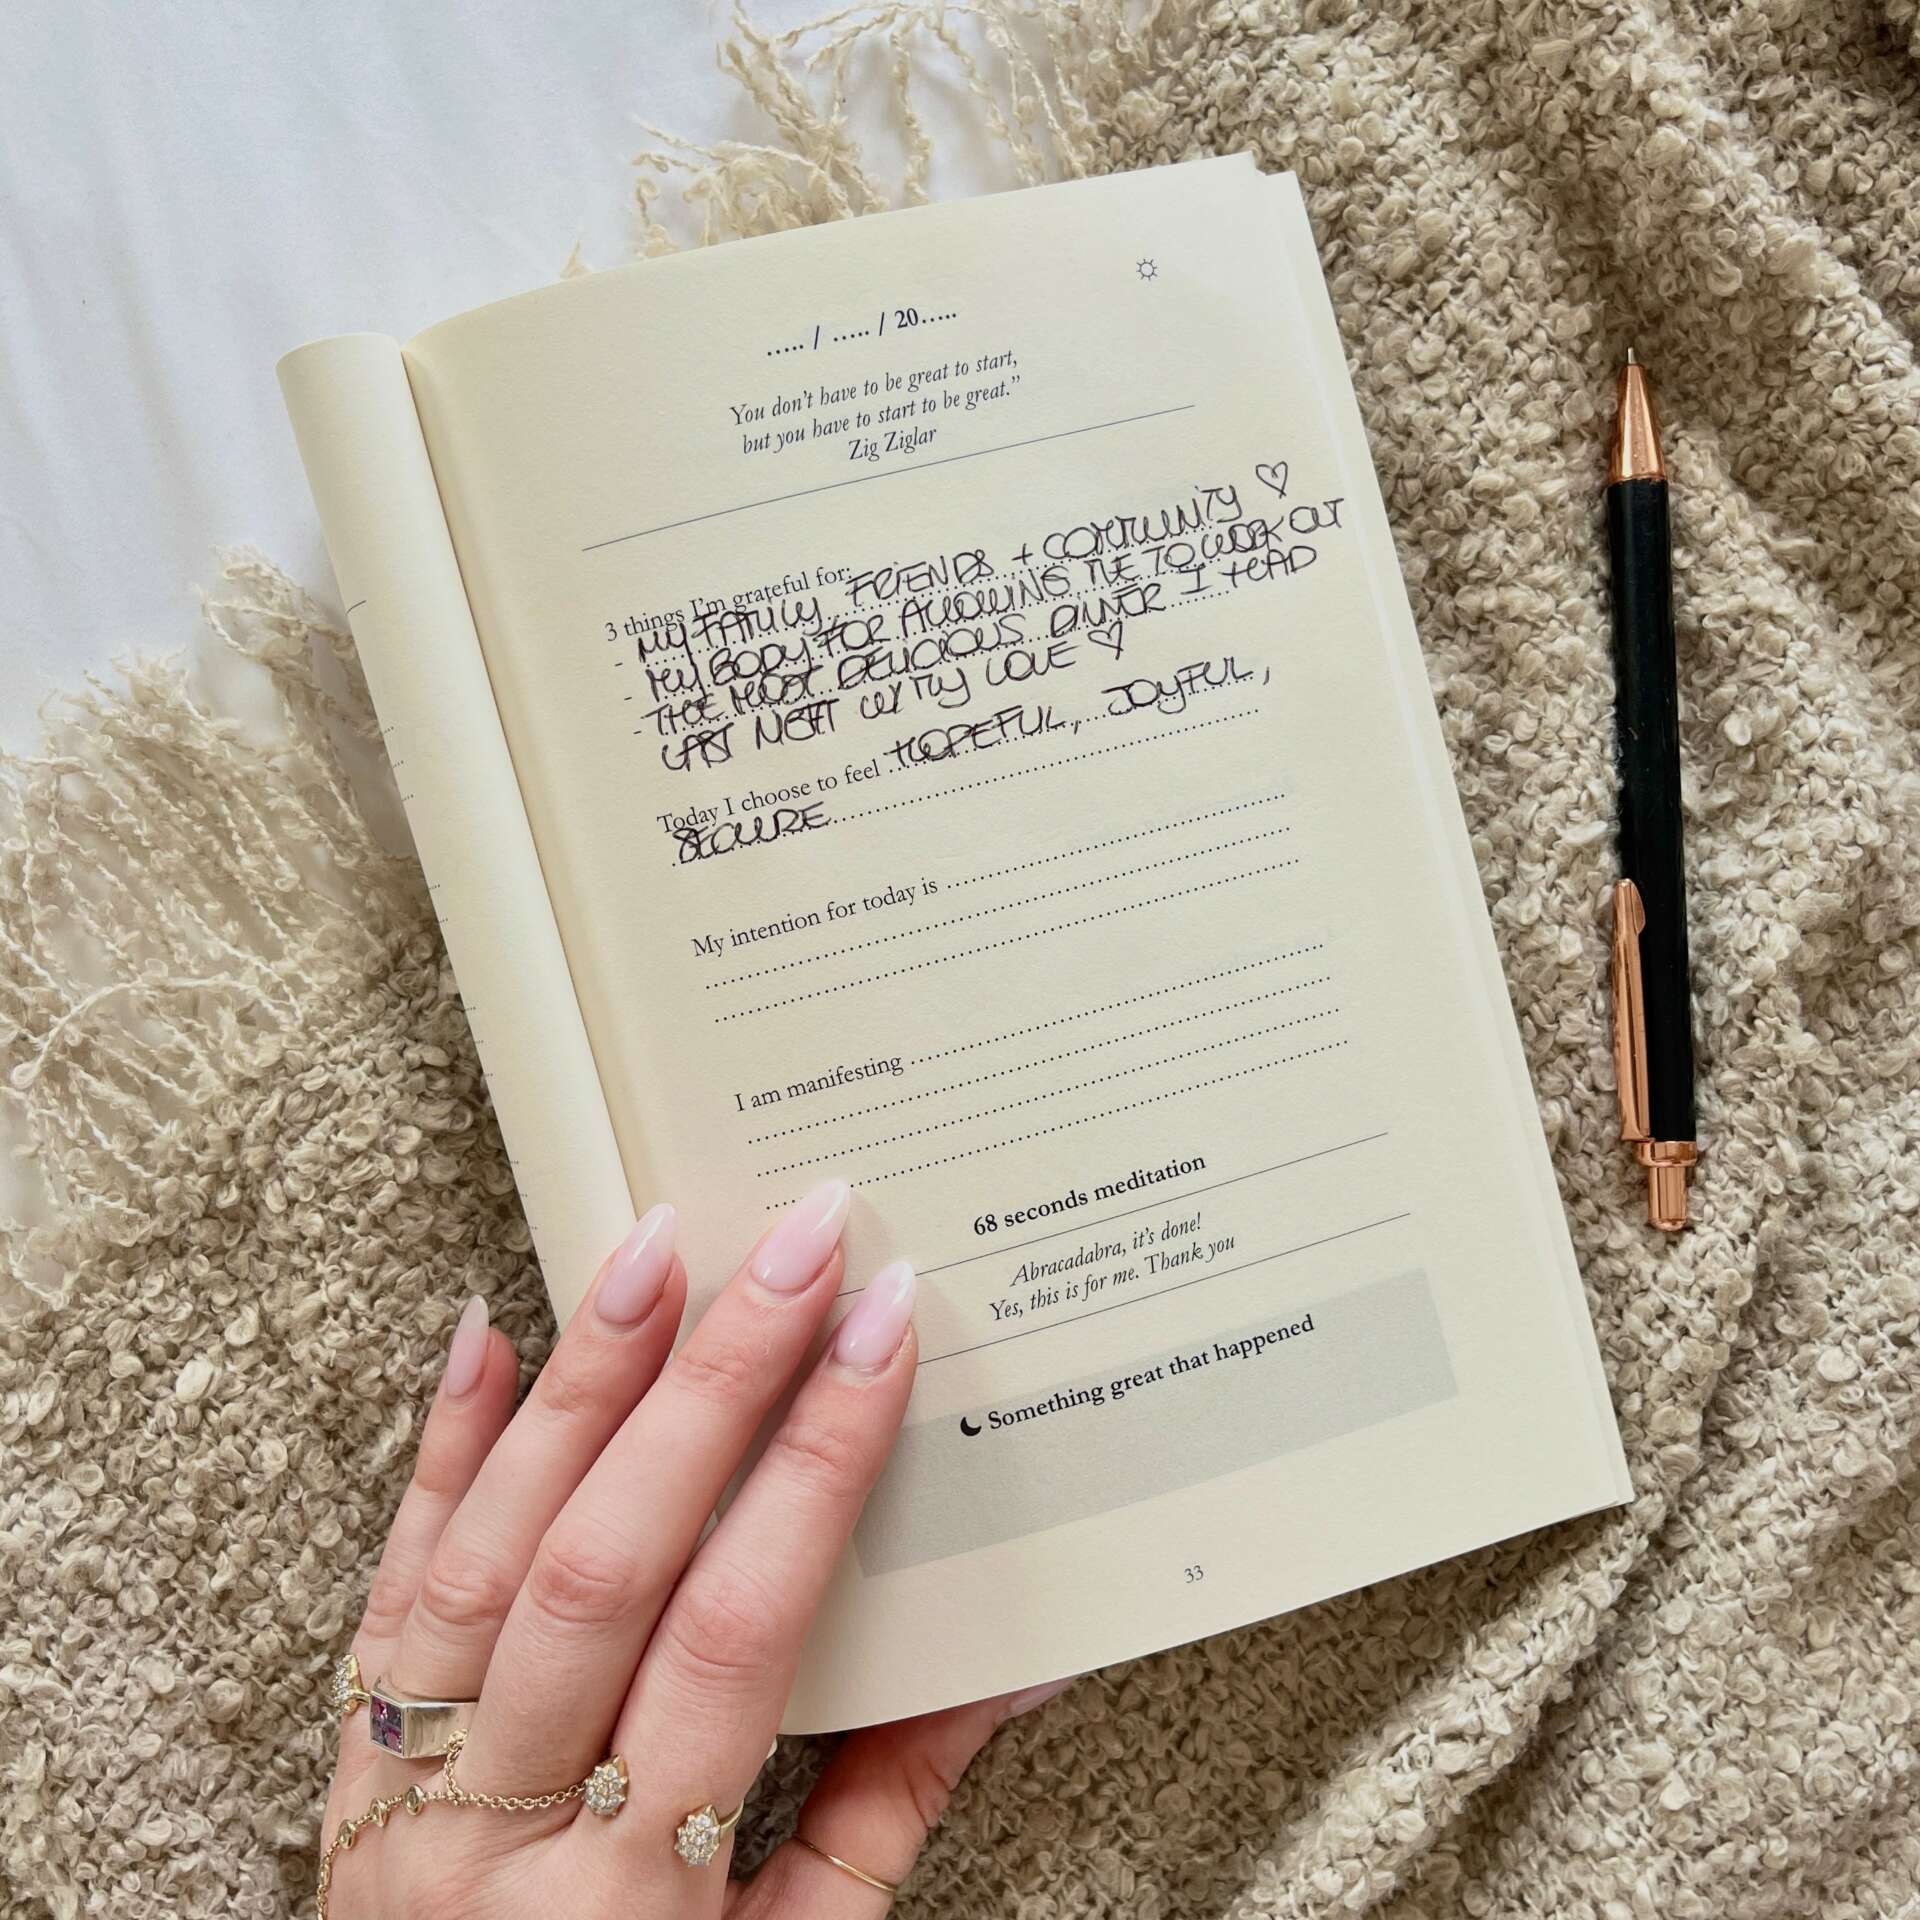 ..... / ..... / 20.....
You don't have to be great to start,
but you have to start to be great.”
Zig Ziglar
3 things I'm grateful for:
- MY FAMILY, FRIENDS + COMMUNITY ♡
- MY BODY FOR ALLOWING ME TO WORK OUT
- THE MOST DELICIOUS DINNER I HAD
LAST NIGHT W/ MY LOVE ♡
Today I choose to feel HOPEFUL, JOYFUL,
SECURE
My intention for today is
I am manifesting
68 seconds meditation
Abracadabra, it's done!
Yes, this is for me. Thank you
Something great that happened
33